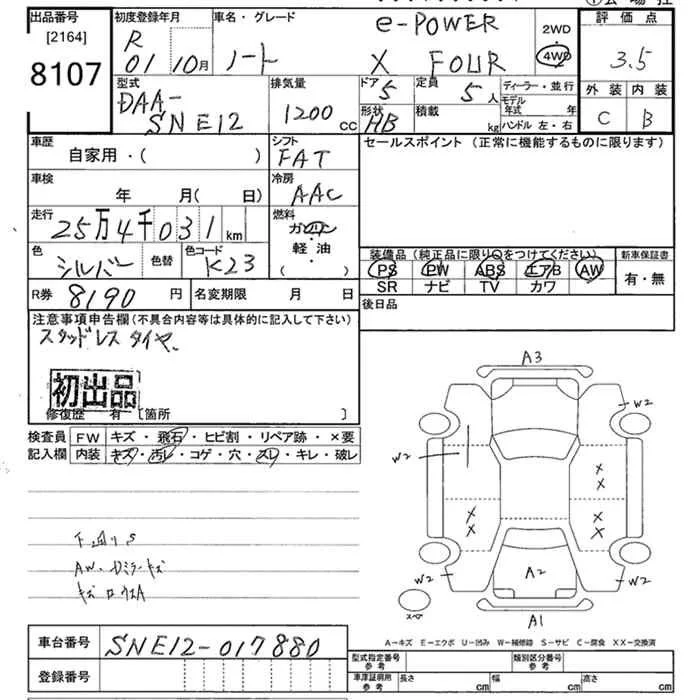 出品番号
[2164]
8107
初度登録年月
R
01 10月
車名・グレード
e-POWER
ノート X FOUR
2WD
4WD
評価点
3.5
外装 内装
C B
型式
DAA-
SNE12
排気量
1200 cc
ドア 5
形状 HB
定員 5 人
積載 kg
ディーラー・並行
モデル年式 年
ハンドル 左・右
車歴
自家用・( )
シフト
FAT
セールスポイント (正常に機能するものに限ります)
車検
年 月( 日)
冷房
AAC
走行
25万4千031 km
燃料
ガソリン
・
軽油
( )
色
シルバー
色替
色コード
K23
装備品(純正品に限り○をつけてください)
新車保証書
PS PW ABS エアB AW
SR ナビ TV カワ
有・無
R券 8190 円
名変期限 月 日
後日品
注意事項申告欄(不具合内容等は具体的に記入して下さい)
スタッドレスタイヤ
初出品
修復歴 有 [箇所 ]
検査員
記入欄
FW キズ・飛石・ヒビ割・リペア跡・×要
内装 キズ・汚レ・コゲ・穴・スレ・キレ・破レ
下回りS
AW、Dミラーキズ
A3
W2
W2
X
X
X
X
X
X
W2
A2
W2
スペア
A1
A-キズ E-エクボ U-凹み W-補修跡 S-サビ C-腐食 XX-交換済
車台番号 SNE12-017880
登録番号
型式指定番号
参考
類別区分番号
参考
車庫証明用
参考
長さ cm 幅 cm 高さ cm